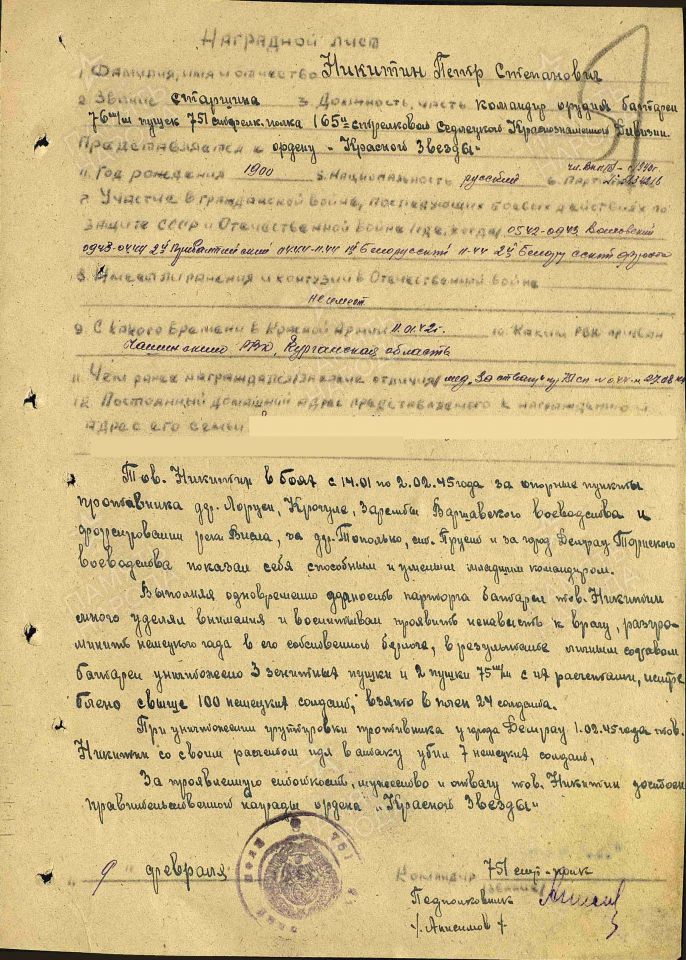 Наградной лист
1. Фамилия, имя и отчество Никитин Петр Степанович
2. Звание старшина 3. Должность, часть командир орудия батареи
76 м/м пушек 751 стрелк. полка 165й стрелковой Седлецкой Краснознаменной Дивизии.
Представляется к ордену "Красного Звезды"
чл. ВКП(б) - с 1940г.
4. Год рождения 1900 5. Национальность русский 6. Партийность
7. Участие в гражданской войне, последующих боевых действиях по
защите СССР и Отечественной войне (где, когда) 05.42-09.43 Волховский
09.43-04.44 2й Прибалтийский 04.44-11.44 1й Белорусский 11-44 2й Белорусский фронт
8. Имеет ли ранения и контузии в Отечественной войне
не имеет
9. С какого времени в Красной Армии 11.01.42г. 10. Каким РВК призван
Чашинским РВК, Курганская область
11. Чем ранее награждался (за какие отличия) мед. "За отвагу"
12. Постоянный домашний адрес представляемого к награждению и
адрес его семьи
Тов. Никитин в боях с 14.01 по 2.02.45 года за опорные пункты
противника дер. Лорцен, Крогуле, Зарембы Варшавского воеводства и
форсировании реки Висла, за дер. Тополько, ст. Пруст и за город Демрау Торнского
воеводства показал себя способным и умелым младшим командиром.
Выполняя одновременно должность парторга батареи тов. Никитин
много уделял внимания и воспитывал проявить ненависть к врагу, разгро-
мить немецкого гада в его собственной берлоге, в результате личным составом
батареи уничтожено 3 зенитных пушки и 2 пушки 75 м/м с их расчетами, истре-
блено свыше 100 немецких солдат, взято в плен 24 солдата.
При уничтожении группировки противника у города Демрау 1.02.45 года тов.
Никитин со своим расчетом идя в атаку убил 7 немецких солдат.
За проявленную стойкость, мужество и отвагу тов. Никитин достоен
правительственной награды ордена "Красного Звезды"
9 февраля
Командир 751 стр. полк
Подполковник
/. Анисимов /.